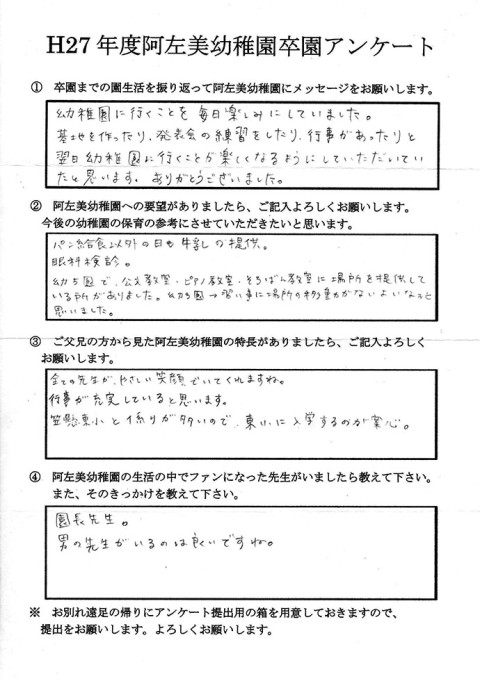 H27 年度阿左美幼稚園卒園アンケート
① 卒園までの園生活を振り返って阿左美幼稚園にメッセージをお願いします。
幼稚園に行くことを毎日楽しみにしていました。
基地を作ったり、発表会の練習をしたり、行事があったりと
翌日幼稚園に行くことが楽しくなるようにしていただいてい
たと思います。ありがとうございました。
② 阿左美幼稚園への要望がありましたら、ご記入よろしくお願いします。
今後の幼稚園の保育の参考にさせていただきたいと思います。
パン給食以外の日も牛乳の提供。
眼科検診。
幼ち園で、公文教室・ピアノ教室・そろばん教室に場所を提供して
いる所がありました。幼ち園→習い事に場所の移動がないよいなぁと
思いました。
③ ご父兄の方から見た阿左美幼稚園の特長がありましたら、ご記入よろしく
お願いします。
全ての先生が、やさしい笑顔でいてくれますね。
行事が充実していると思います。
笠懸東小と係りが多いので、東小に入学するのが安心。
④ 阿左美幼稚園の生活の中でファンになった先生がいましたら教えて下さい。
また、そのきっかけを教えて下さい。
園長先生。
男の先生がいるのは良いですね。
※ お別れ遠足の帰りにアンケート提出用の箱を用意しておきますので、
提出をお願いします。よろしくお願いします。